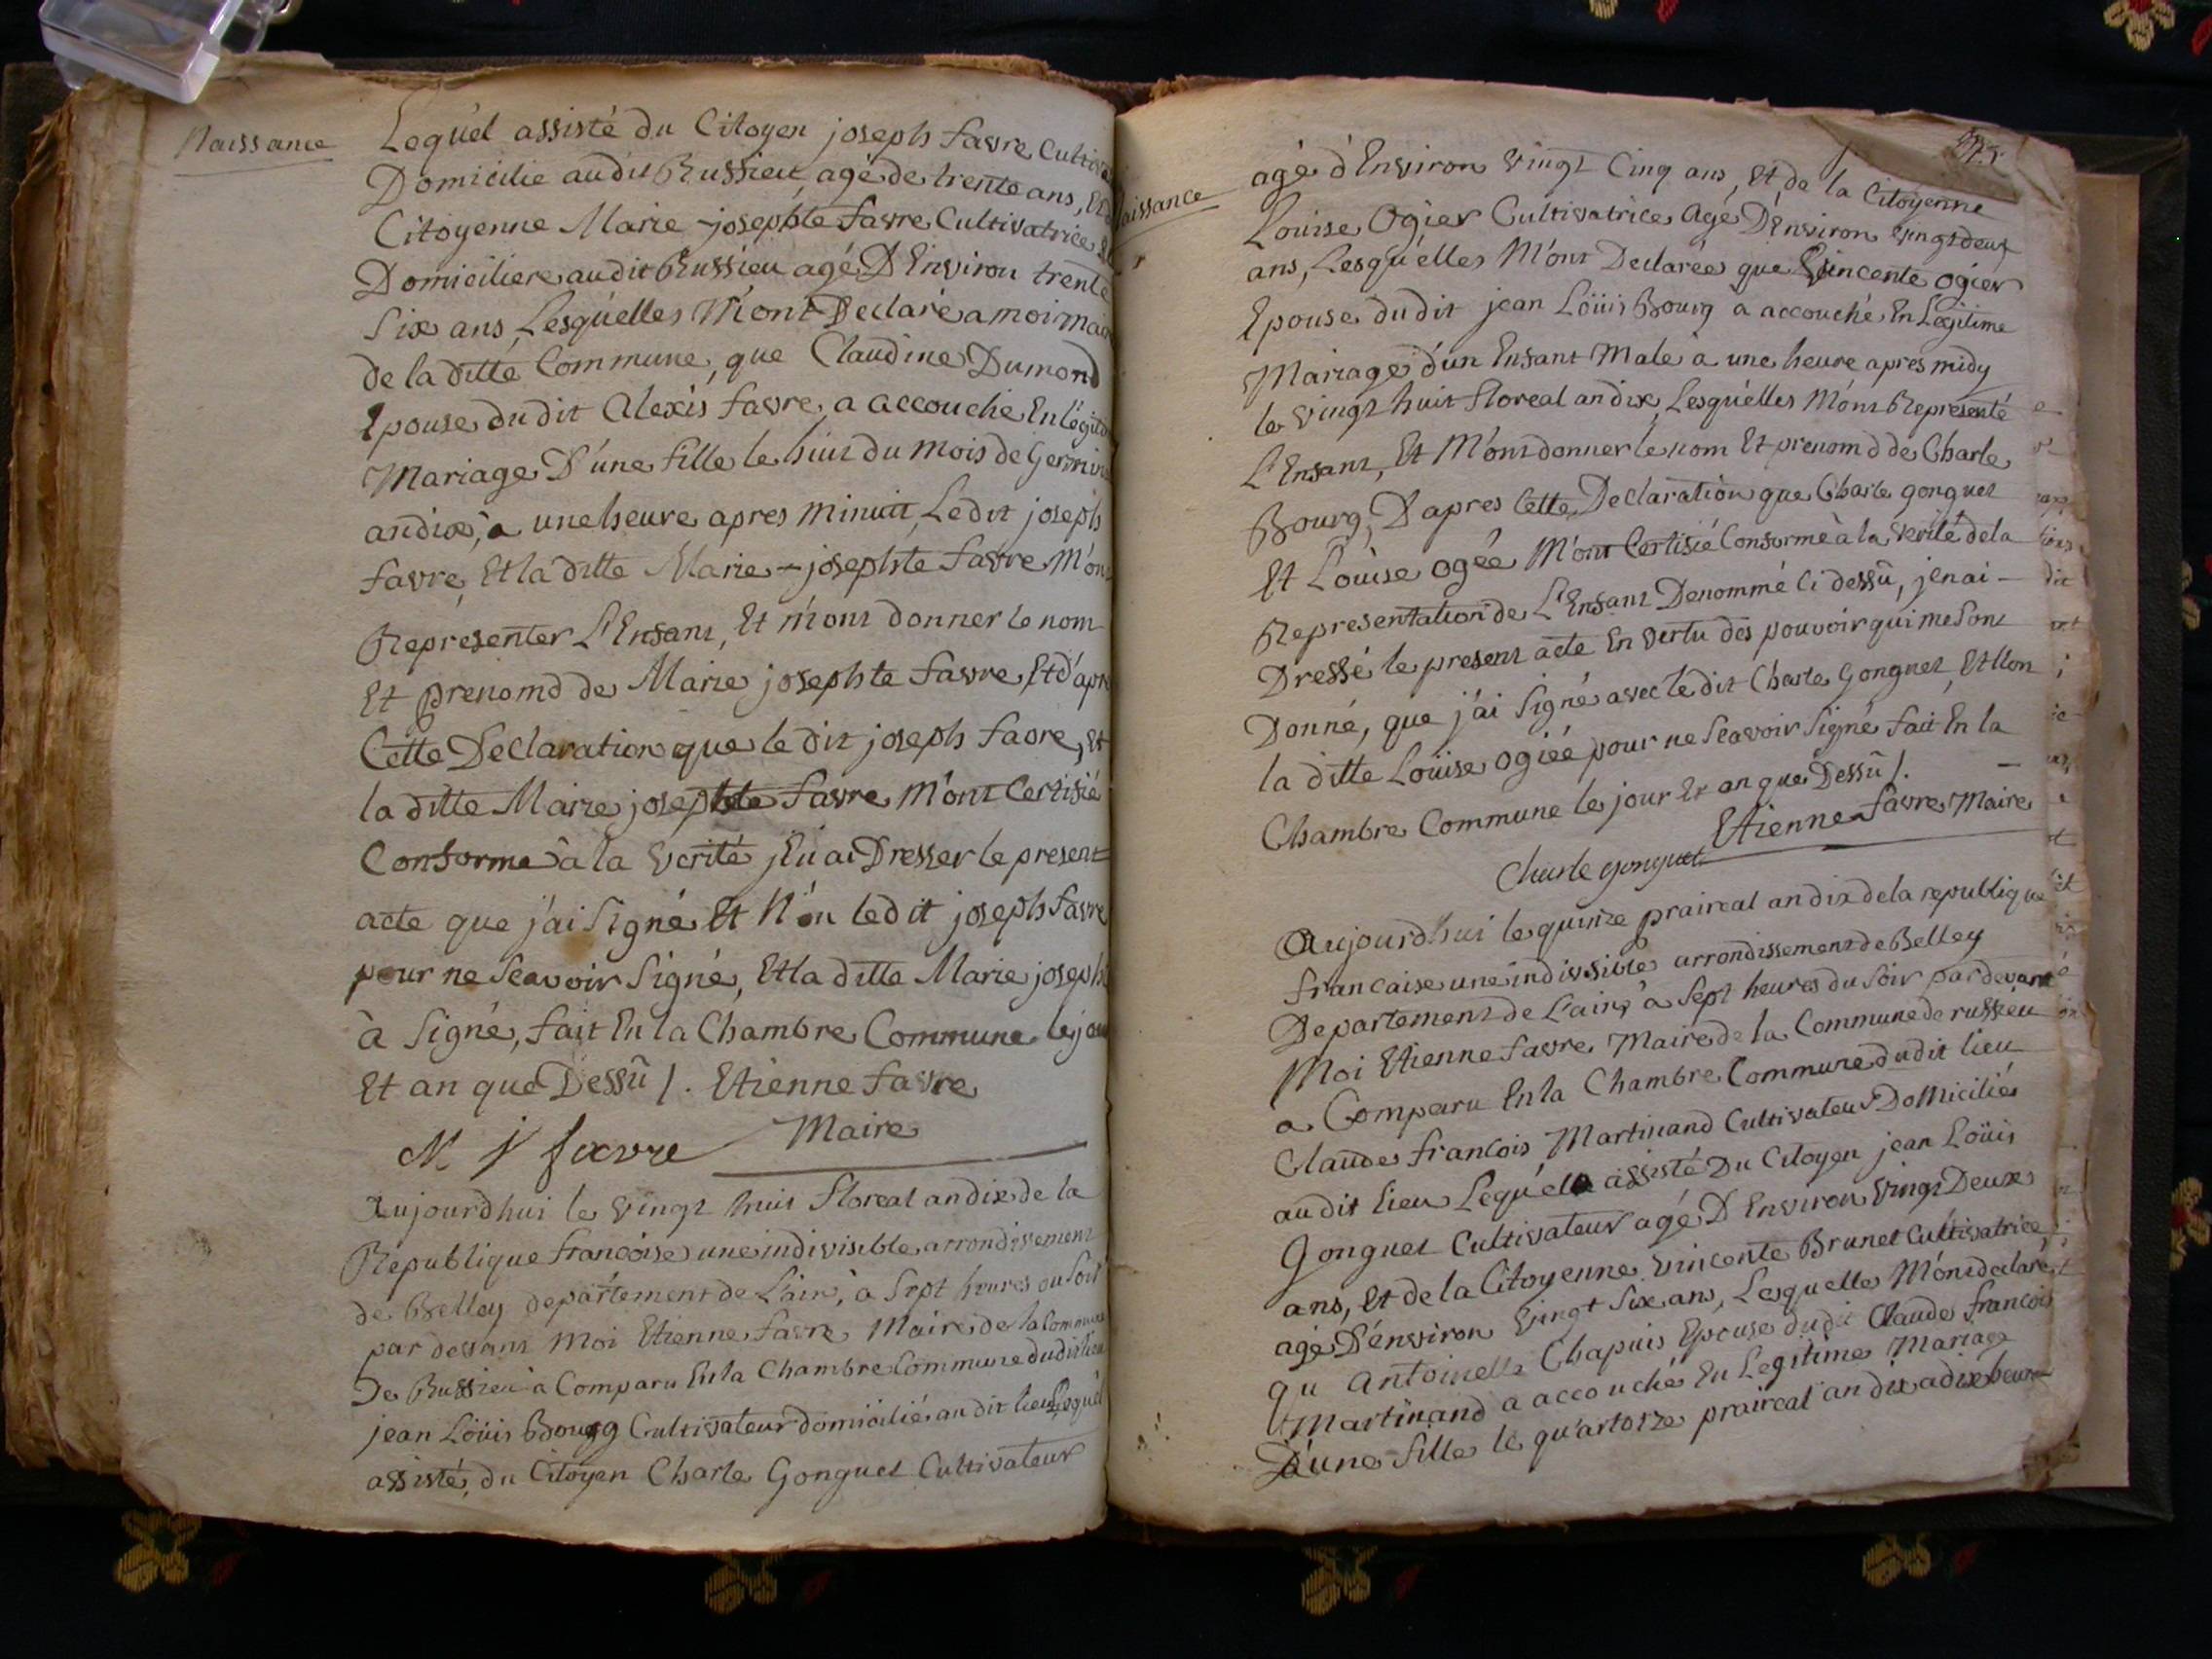 Naissance
Lequ'el assisté du Citoyen joseph favre Cultiva
Domicilie audit Russieu, agé de trente ans, Et
Citoyenne Marie - josephte favre Cultivatrice
Domiciliere audit Russieu agé D'Environ trente
Six ans, Lesqu'elles M'ont Declaré a moi mai
de la ditte Commune, que Claudine Dumond
Epouse du dit Alexis favre, a accouché En légit
Mariage D'une fille le huit du Mois de Germin
an dix, a une heure apres minuit, Le dit joseph
favre, Et la ditte Marie - josephte favre M'on
Representer L'Enfant, Et m'ont donner le nom
Et prenomd de Marie josephte favre, Et d'apr
Cette Declaration que le dit joseph favre, Et
la ditte Marie josephte favre M'ont Certifié
Conforme à la verité j'En ai Dresser le present
acte que j'ai Signé Et N'on le dit joseph favre
pour ne Scavoir Signé, Et la ditte Marie joseph
à Signé, fait En la Chambre Commune le jou
Et an que Dessû /. Etienne favre
Maire
M j favre
Aujourdhui le vingt huit floreal an dix de la
Republique francoise une indivisible arrondisement
de Belley departement de L'ain, à Sept heures du Soir
par devant Moi Etienne favre Maire de la Commune
De Russieu à Comparu En la Chambre Commune dudit lieu
jean Loüis Bourg Cultivateur domicilié audit lieu Lequél
assisté, du Citoyen Charle Gonguet Cultivateur
aissance
agé d'Environ vingt Cinq ans, Et de la Citoyenne
Louise Ogier Cultivatrice Agé D'Environ vingt deux
ans, Lesqu'elles M'ont Declarée que Vincente Ogier
Epouse du dit jean Loüis Bourg a accouché En Légitime
Mariage d'un Enfant Male à une heure apres midy
le vingt huit floreal an dix, Lesqu'elles M'ont Representé
L'Enfant, Et M'ont donner le nom Et prenomd de Charle
Bourg, D'apres Cette Declaration que Charle gonguet
Et Loüise ogée M'ont Certifié Conforme à la verité de la
Representation de L'Enfant Denommé Ci dessû, j'en ai -
Dressé le present acte En vertu des pouvoir qui me Sont
Donné, que j'ai Signé avec le dit Charle Gonguet, Et Non
la ditte Loüise ogiée pour ne Scavoir Signé fait En la
Chambre Commune le jour Et an que Dessû /.
Etienne favre Maire
Charle gonguet
Aujourdhui le quinze praireal an dix de la republique
francaise une indivisible arrondissement de Belley
Departement de L'ain, à Sept heures du Soir par devant
Moi Etienne favre Maire de la Commune de russieu
a Comparu En la Chambre Commune dudit lieu
Claude francois Martinand Cultivateur Domiciliés
audit lieu Lequ'el assisté Du Citoyen jean Loüis
Gonguet Cultivateur agé D'Environ vingt Deux
ans, Et de la Citoyenne vincente Brunet Cultivatrice
agé D'environ vingt Six ans, Lesquelles M'ont declaré
qu Antoinette Chapuis Epouse du dit Claude francois
Martinand a accouché En Legitime Mariage
D'une fille le qu'artorze praireal an dix a dix heure